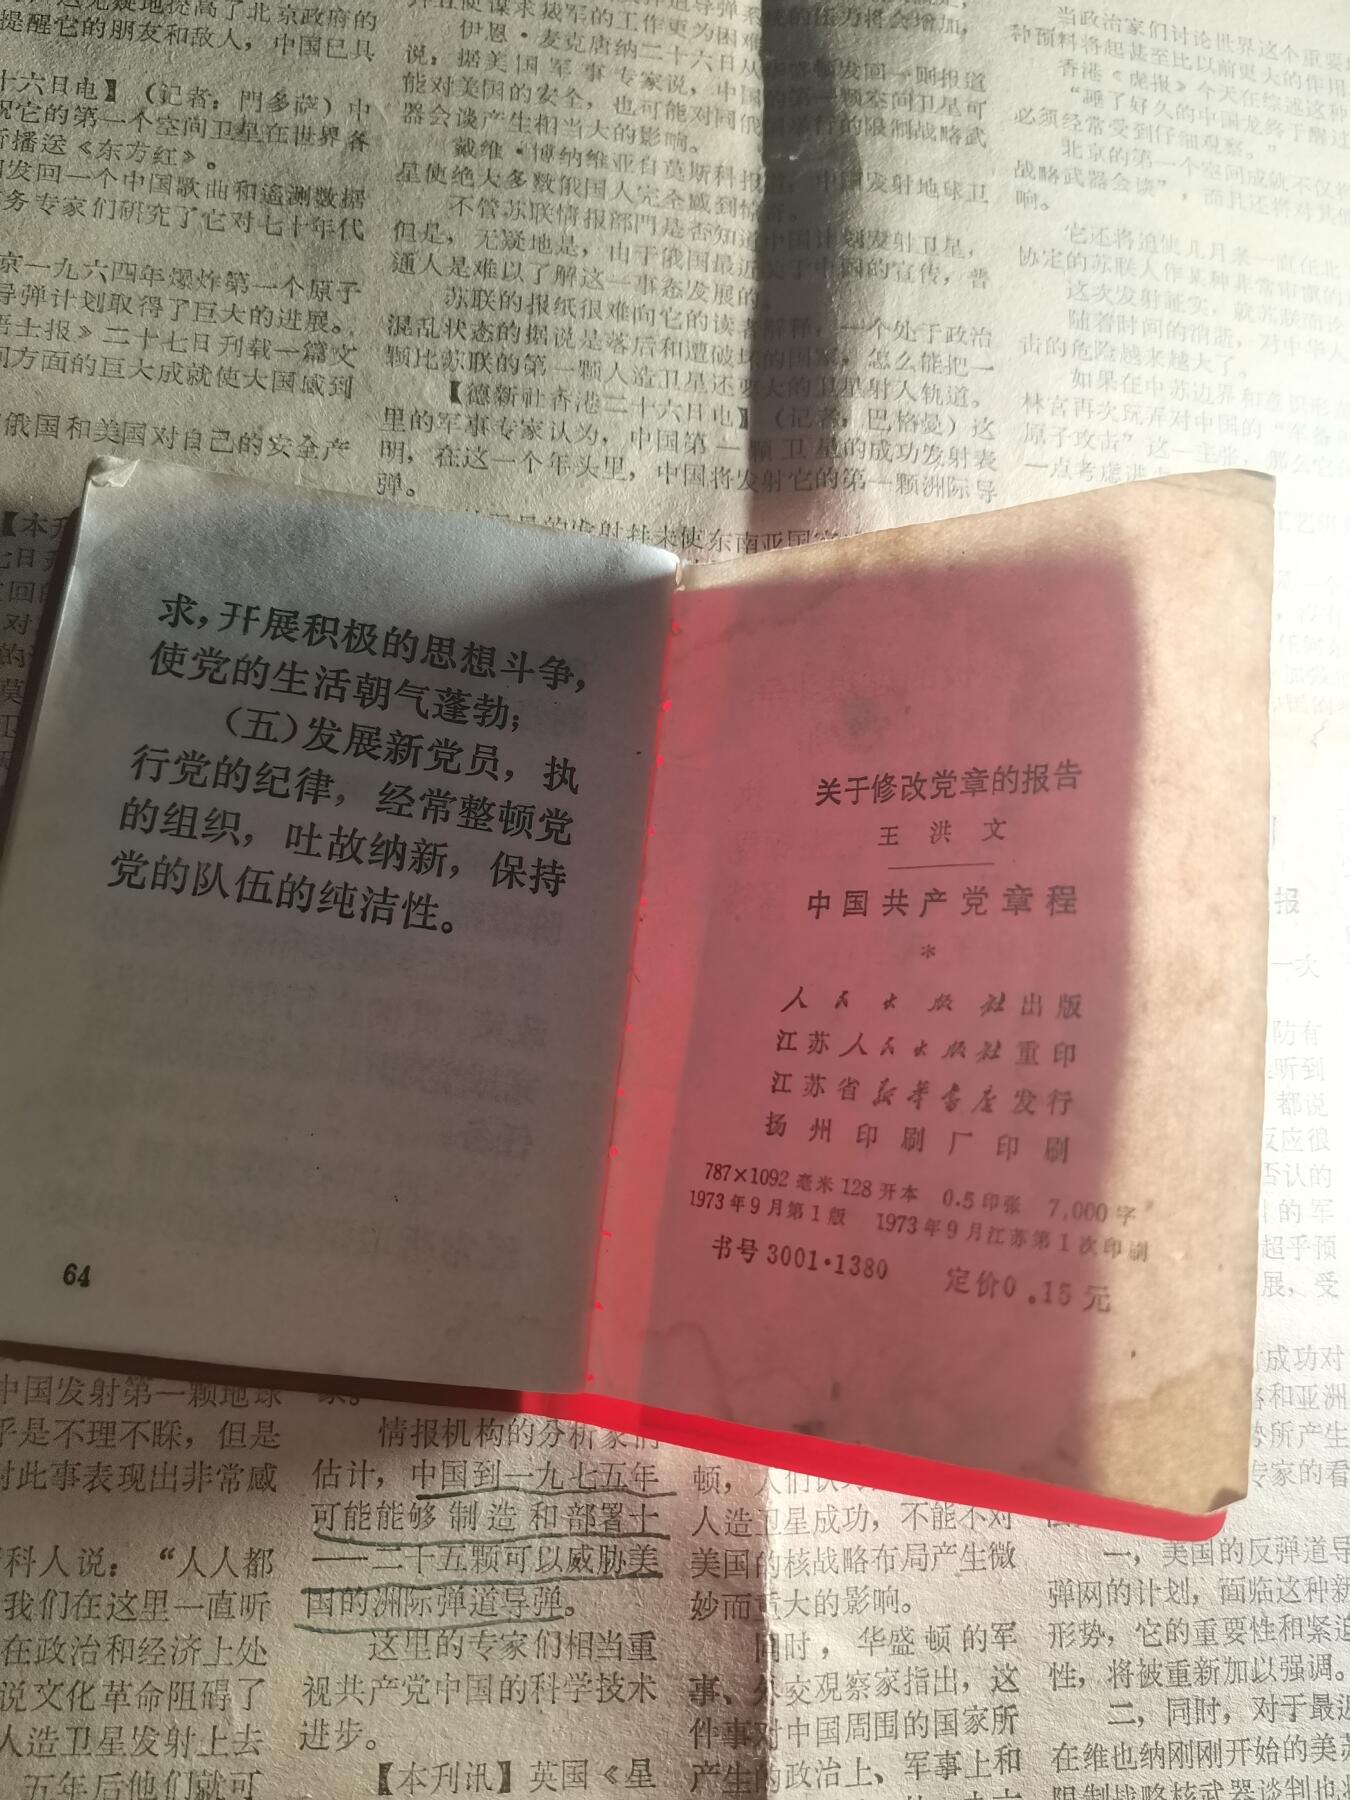 提醒它的朋友和敌人，中国已具
十六日电】（记者：門多萨）中
它的第一个空间卫星在世界各
播送《东方红》。
发回一个中国歌曲和遥测数据
务专家们研究了它对七十年代
京一九六四年爆炸第一个原子
导弹计划取得了巨大的进展。
士报》二十七日刊载一篇文
方面的巨大成就使大国感到
俄国和美国对自己的安全产
伊恩·麦克唐纳二十六日从
发回一则报道
说：据美国军事专家说，中国的第一颗空间卫星可
能对美国的安全，也可能对同俄国举行的限制战略武
器会谈产生相当大的影响。
戴维·博纳维亚自莫斯科报道：中国发射地球卫
星使绝大多数俄国人完全感到惊奇。
不管苏联情报部門是否知道中国计划发射卫星，
但是，无疑地是，由于俄国最近关于中国的宣传，普
通人是难以了解这一事态发展的。
苏联的报纸很难向它的读者解释，一个处于政治
混乱状态的据说是落后和遭破坏的国家，怎么能把一
颗比苏联的第一颗人造卫星还要大的卫星射入轨道。
【德新社香港二十六日电】（记者：巴格曼）这
里的军事专家认为，中国第一颗卫星的成功发射表
明，在这一个年头里，中国将发射它的第一颗洲际导
弹。
当政治家们讨论世界这个重要
种预料将起甚至比以前更大的作用
香港《虎报》今天在综述这种
“睡了好久的中国龙终于醒过
必须经常受到仔细观察。”
北京的第一个空间成就不仅将
战略武器会谈”，而且还将对其他
响。
它还将迫使几月来一直在北
协定的苏联人作某种非常审慎的
这次发射証实，就苏联而论
随着时间的消逝，对中华人
击的危险越来越大了。
如果在中苏边界和意识形态
林宫再次玩弄对中国的“军备
原子攻击”这一主张，那么它
求，开展积极的思想斗争，
使党的生活朝气蓬勃；
（五）发展新党员，执
行党的纪律，经常整顿党
的组织，吐故纳新，保持
党的队伍的纯洁性。
64
关于修改党章的报告
王洪文
中国共产党章程
*
人民出版社出版
江苏人民出版社重印
江苏省新华书店发行
扬州印刷厂印刷
787×1092毫米128开本 0.5印张 7,000字
1973年9月第1版 1973年9月江苏第1次印刷
书号3001·1380 定价0.15元
中国发射第一颗地球
乎是不理不睬，但是
对此事表现出非常感
科人说：“人人都
我们在这里一直听
在政治和经济上处
说文化革命阻碍了
人造卫星发射上去
五年后他们就可
情报机构的分析家们
估计，中国到一九七五年
可能能够制造和部署十
——二十五颗可以威胁美
国的洲际弹道导弹。
这里的专家们相当重
视共产党中国的科学技术
进步。
【本刊讯】英国《星
人造卫星成功，不能不对
美国的核战略布局产生微
妙而重大的影响。
同时，华盛顿的军
事、外交观察家指出，这
件事对中国周围的国家所
产生的政治上、军事上和
一，美国的反弹道导
弹网的计划，面临这种新
形势，它的重要性和紧迫
性，将被重新加以强调。
二，同时，对于最近
在维也纳刚刚开始的美苏
限制战略核武器谈判也将